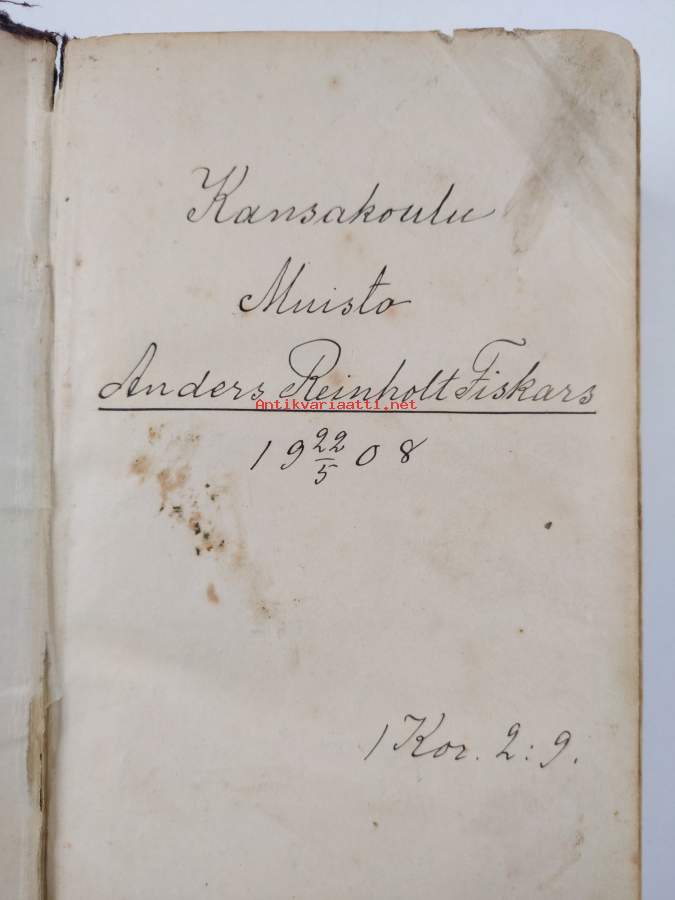 Kansakoulu
Muisto
Anders Reinholt Fiskars
Antikvariaatti.net
19 22/5 08
1 Kor. 2:9.